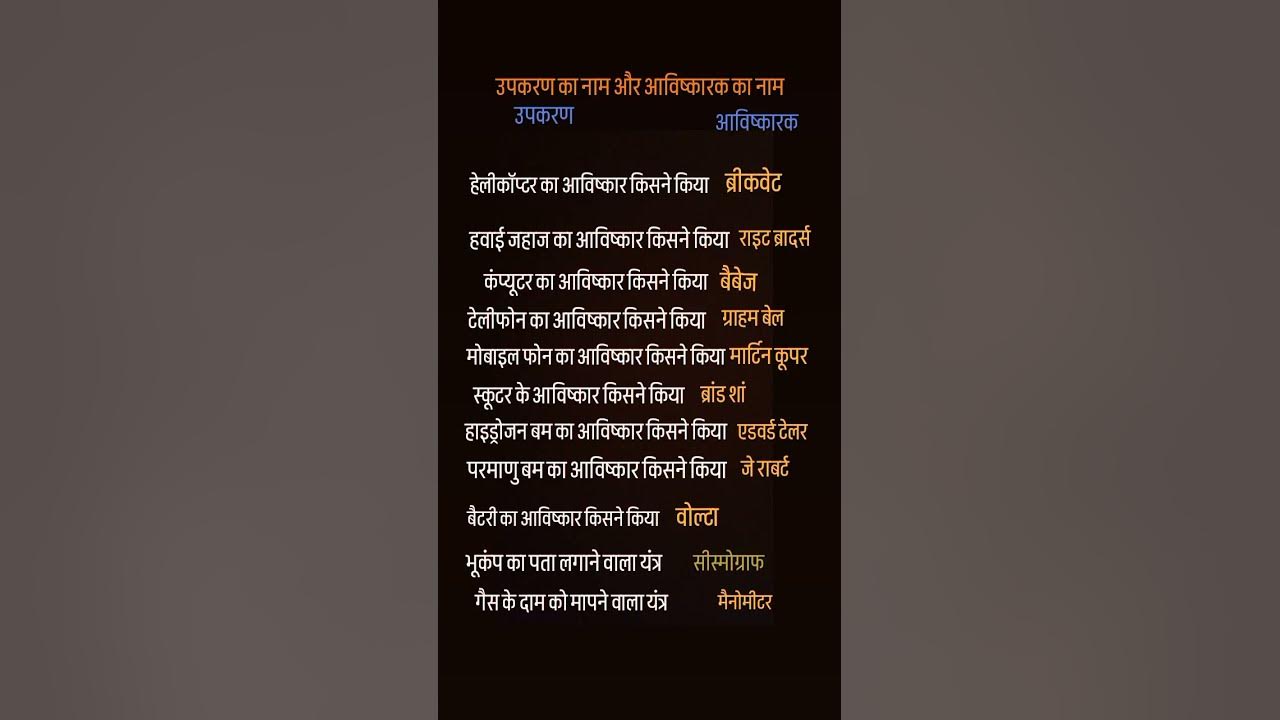 उपकरण का नाम और आविष्कारक का नाम
उपकरण आविष्कारक
हेलीकॉप्टर का आविष्कार किसने किया ब्रीकवेट
हवाई जहाज का आविष्कार किसने किया राइट ब्रादर्स
कंप्यूटर का आविष्कार किसने किया बैबेज
टेलीफोन का आविष्कार किसने किया ग्राहम बेल
मोबाइल फोन का आविष्कार किसने किया मार्टिन कूपर
स्कूटर के आविष्कार किसने किया ब्रांड शां
हाइड्रोजन बम का आविष्कार किसने किया एडवर्ड टेलर
परमाणु बम का आविष्कार किसने किया जे राबर्ट
बैटरी का आविष्कार किसने किया वोल्टा
भूकंप का पता लगाने वाला यंत्र सीस्मोग्राफ
गैस के दाम को मापने वाला यंत्र मैनोमीटर